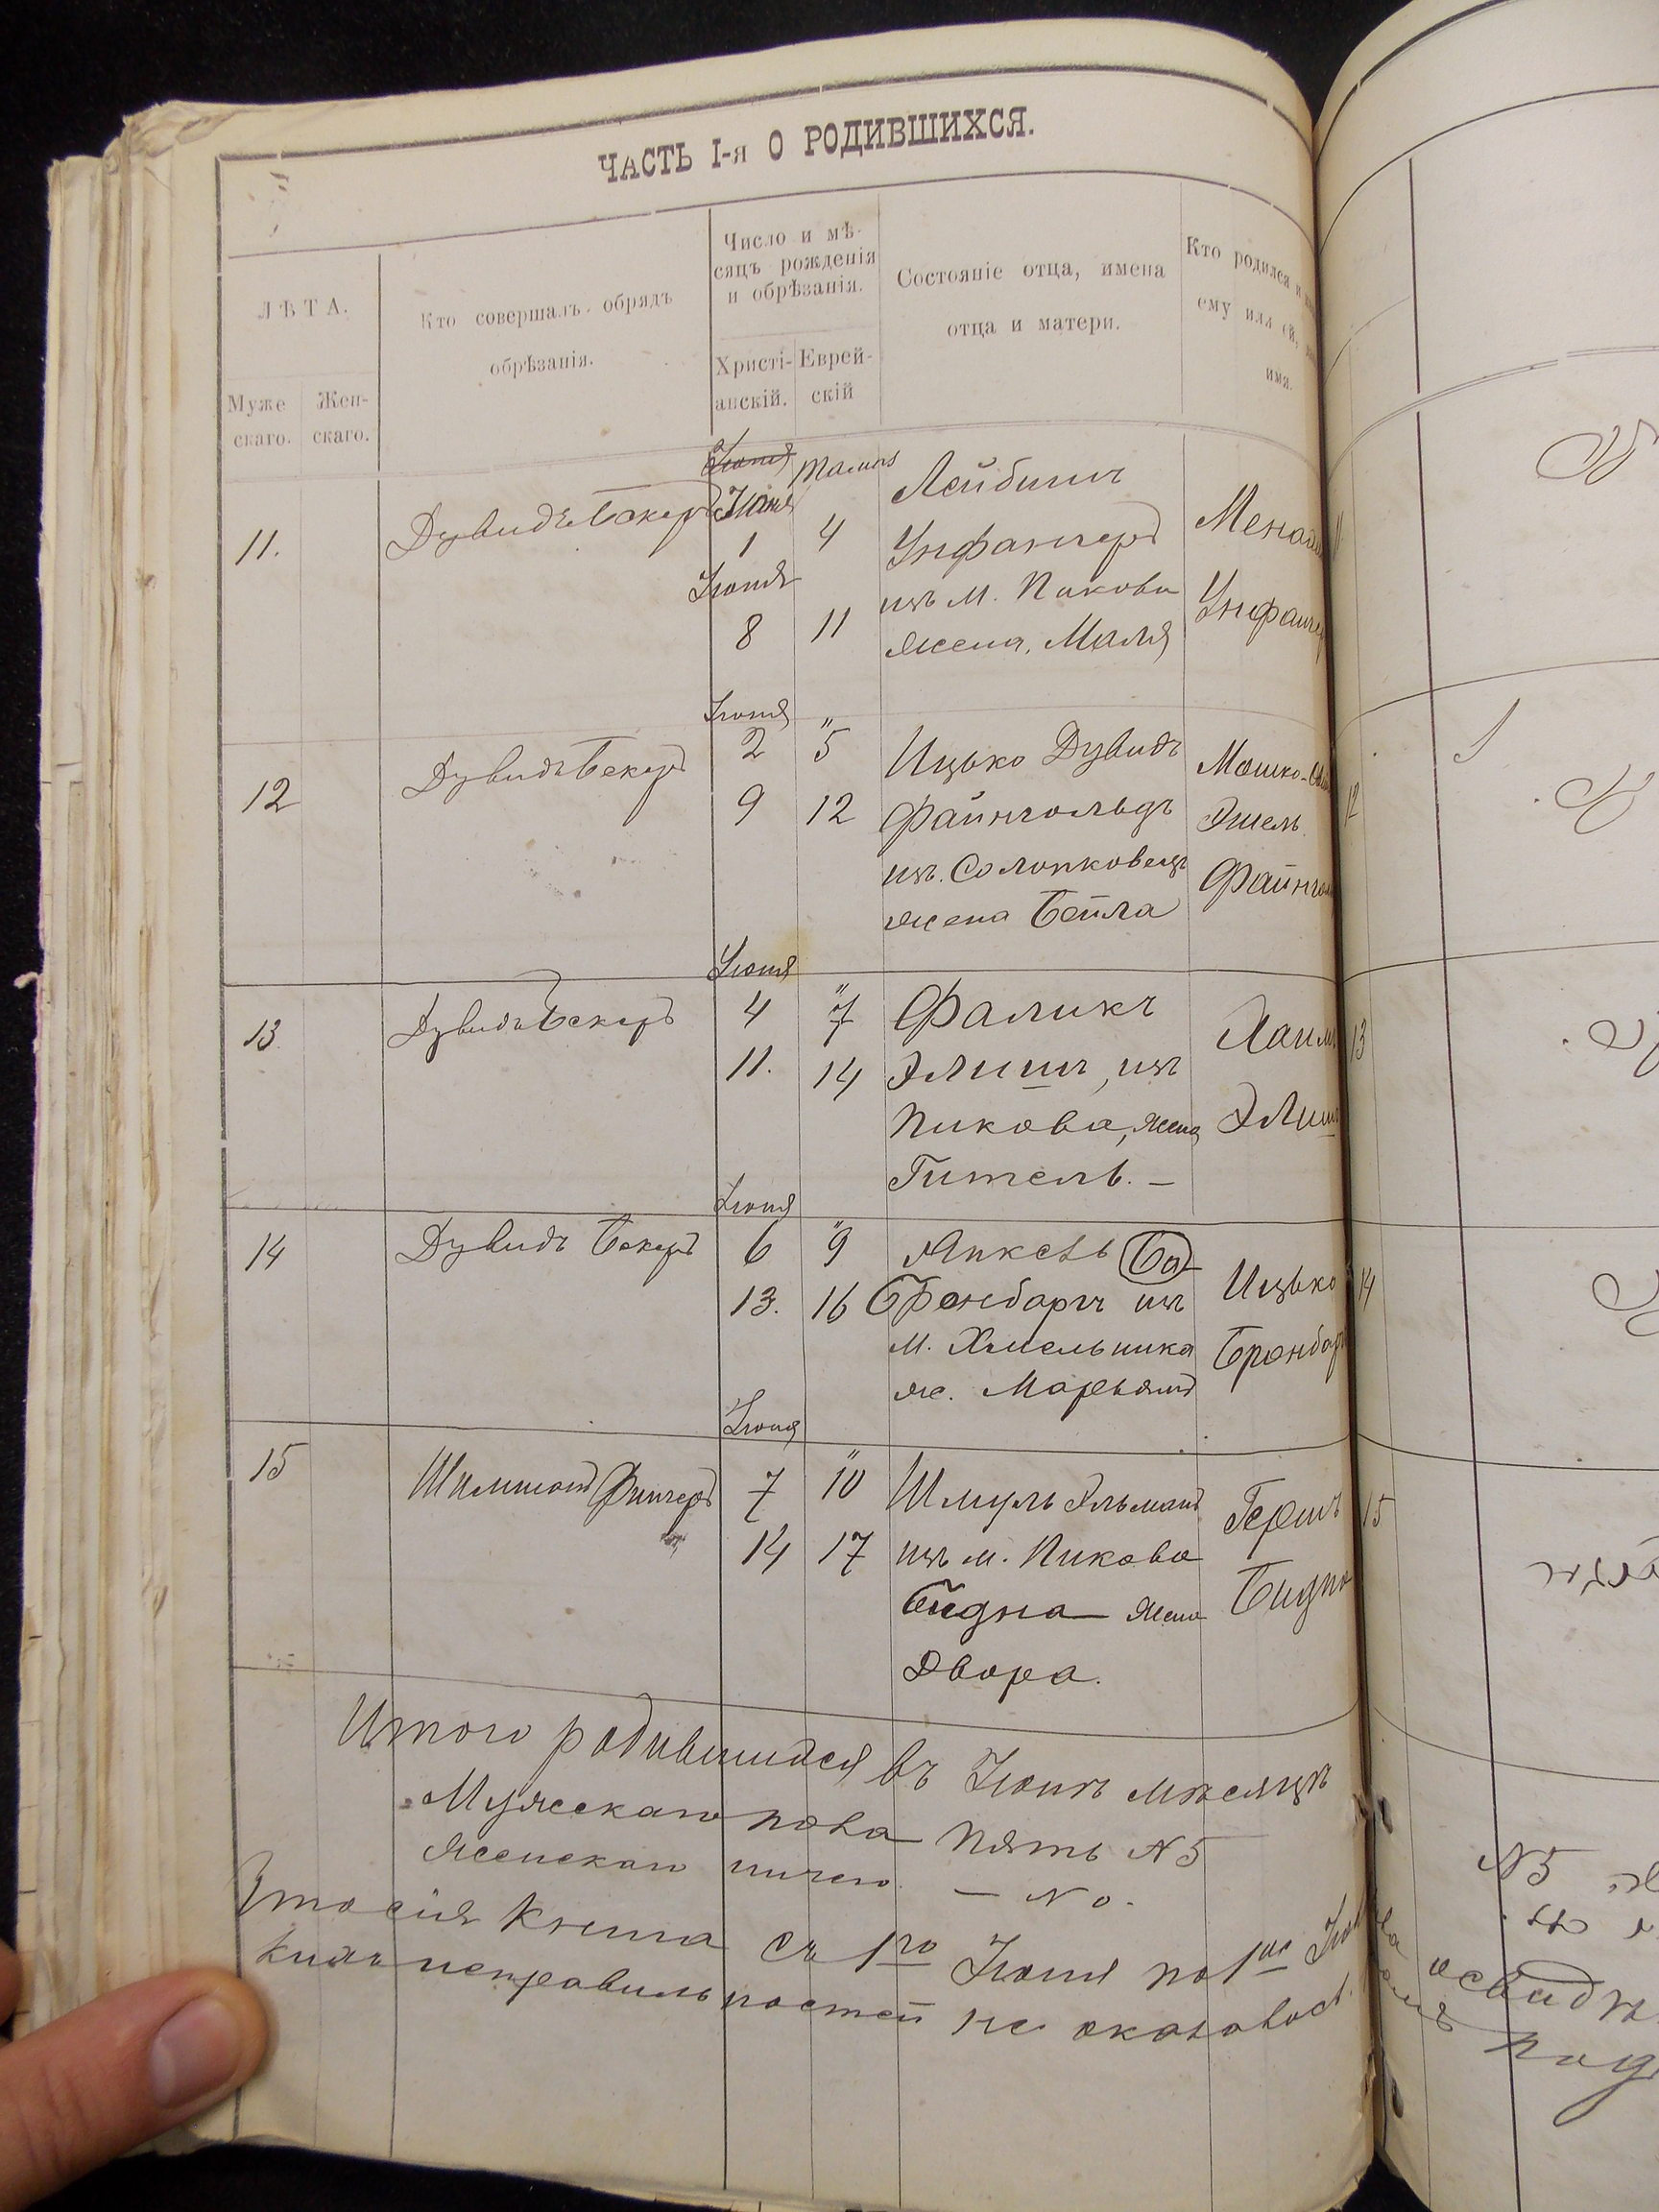 ЧАСТЬ I-я О РОДИВШИХСЯ.
ЛѢТА.
Муже
скаго.
Жен-
скаго.
Кто совершалъ обрядъ
обрѣзанія.
Число и мѣ-
сяцъ рожденія
и обрѣзанія.
Христі-
анскій.
Еврей-
скій
Состояніе отца, имена
отца и матери.
Кто родился и
ему или ей,
имя.
11.
Дувидъ Бекеръ
Іюня
Іюня
1
Іюня
8
4
11
Лейбишъ
Унфангеръ
изъ м. Пикова
жена, Маля
12
Дувидъ Бекеръ
Іюня
2
9
" 5
12
Ицько Дувидъ
Файнгольдъ
изъ Солопковецъ
жена Бейла
Мошко-
Эшель
12
13
Дувидъ Бекеръ
Іюня
4
11.
" 7
14
Фаликъ
Элишъ, изъ
Пикова, жена
Гитель. —
Хаимъ
Элишъ
13
14
Дувидъ Бекеръ
Іюня
6
13.
" 9
16
Янкель Ба
Бронбаргъ изъ
м. Хмельника
ж. Марьямъ
Ицько
Бронбаргъ
14
15
Іюня
7
14
" 10
17
Шмуль Эльманъ
изъ м. Пикова
Бидна жена
Двора.
Гершъ
Бидна
15
Итого родившихся въ Іюнѣ мѣсяцѣ
Мужскаго пола пять N 5
Женскаго ничего — N 0.
Что сія книга съ 1го Іюня по 1ое
неправильностей не оказалось.
N 5